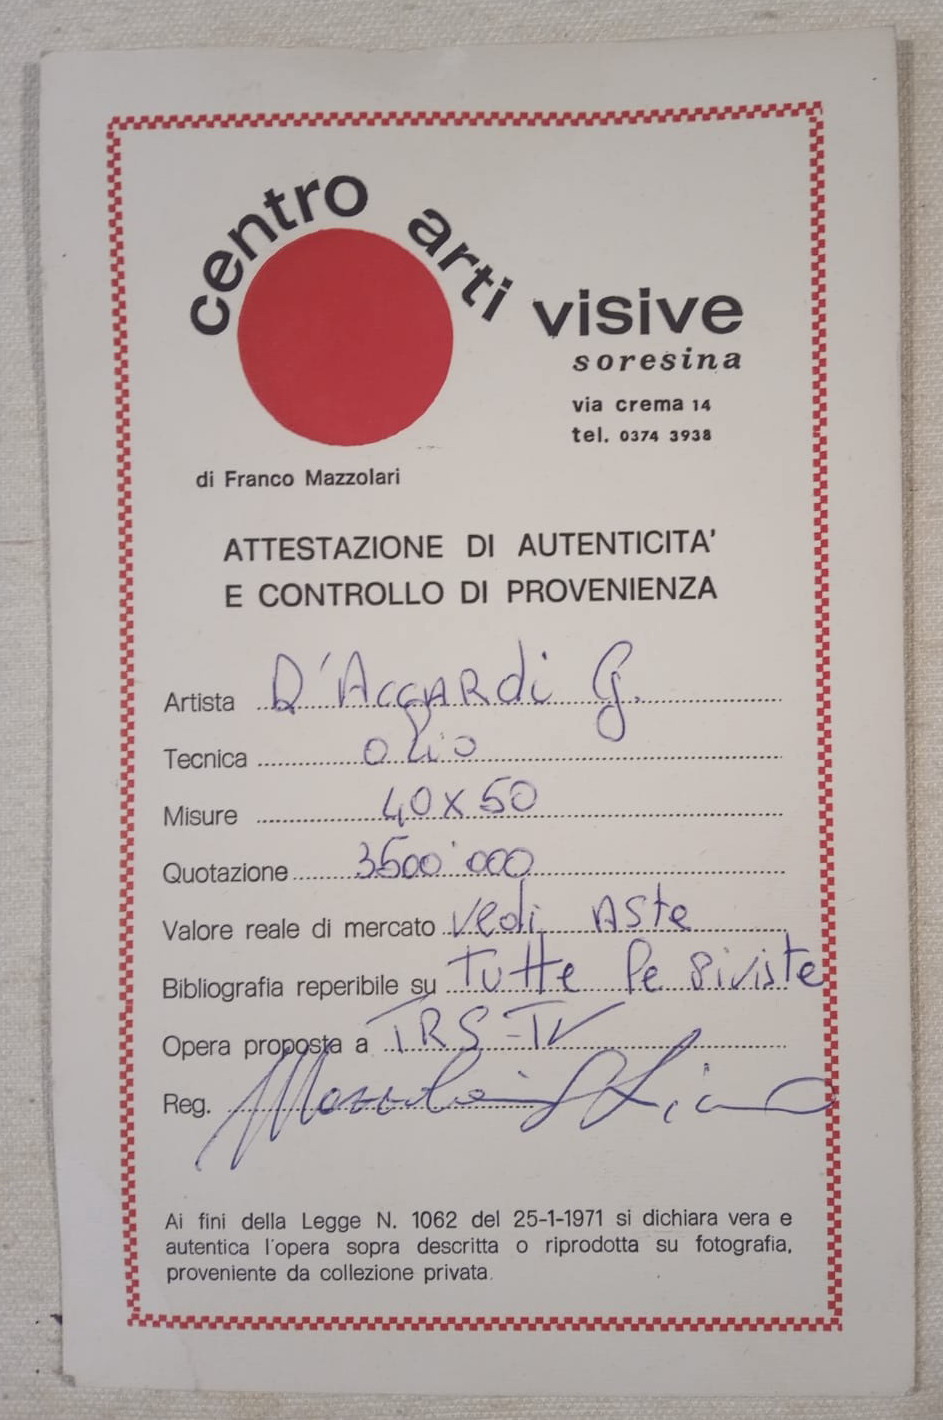 centro arti visive
soresina
via crema 14
tel. 0374 3938
di Franco Mazzolari
ATTESTAZIONE DI AUTENTICITA'
E CONTROLLO DI PROVENIENZA
Artista D'Accardi G.
Tecnica olio
Misure 40x50
Quotazione 3500'000
Valore reale di mercato Vedi Aste
Bibliografia reperibile su Tutte le riviste
Opera proposta a TRS-TV
Reg.
Ai fini della Legge N. 1062 del 25-1-1971 si dichiara vera e
autentica l'opera sopra descritta o riprodotta su fotografia,
proveniente da collezione privata.